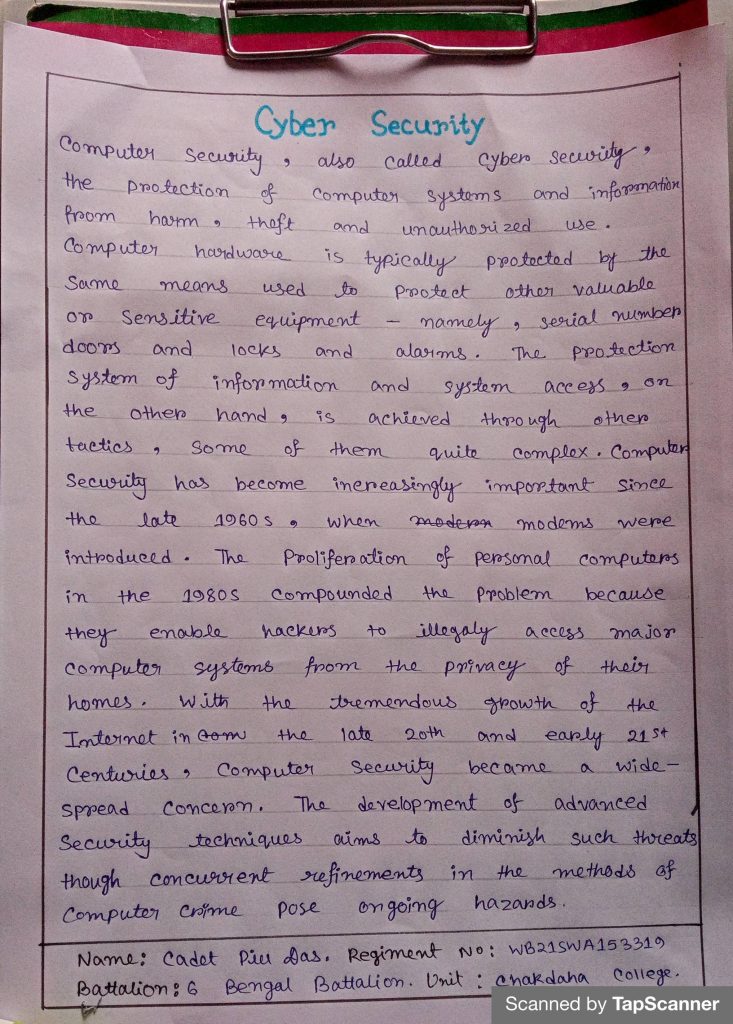 Cyber Security
Computer security, also called cyber security,
the protection of computer systems and information
from harm, theft and unauthorized use.
Computer hardware is typically protected by the
same means used to protect other valuable
or sensitive equipment – namely, serial number
doors and locks and alarms. The protection
system of information and system access, on
the other hand, is achieved through other
tactics, some of them quite complex. Computer
security has become increasingly important since
the late 1960s, when modern modems were
introduced. The proliferation of personal computers
in the 1980s compounded the problem because
they enable hackers to illegaly access major
computer systems from the privacy of their
homes. With the tremendous growth of the
Internet in the late 20th and early 21st
Centuries, Computer Security became a wide-
spread concern. The development of advanced
security techniques aims to diminish such threats
though concurrent refinements in the methods of
Computer crime pose ongoing hazards.
Name: Cadet Piu Das. Regiment No: WB21SWA153319
Battalion: 6 Bengal Battalion. Unit: Chakdaha College.
Scanned by TapScanner